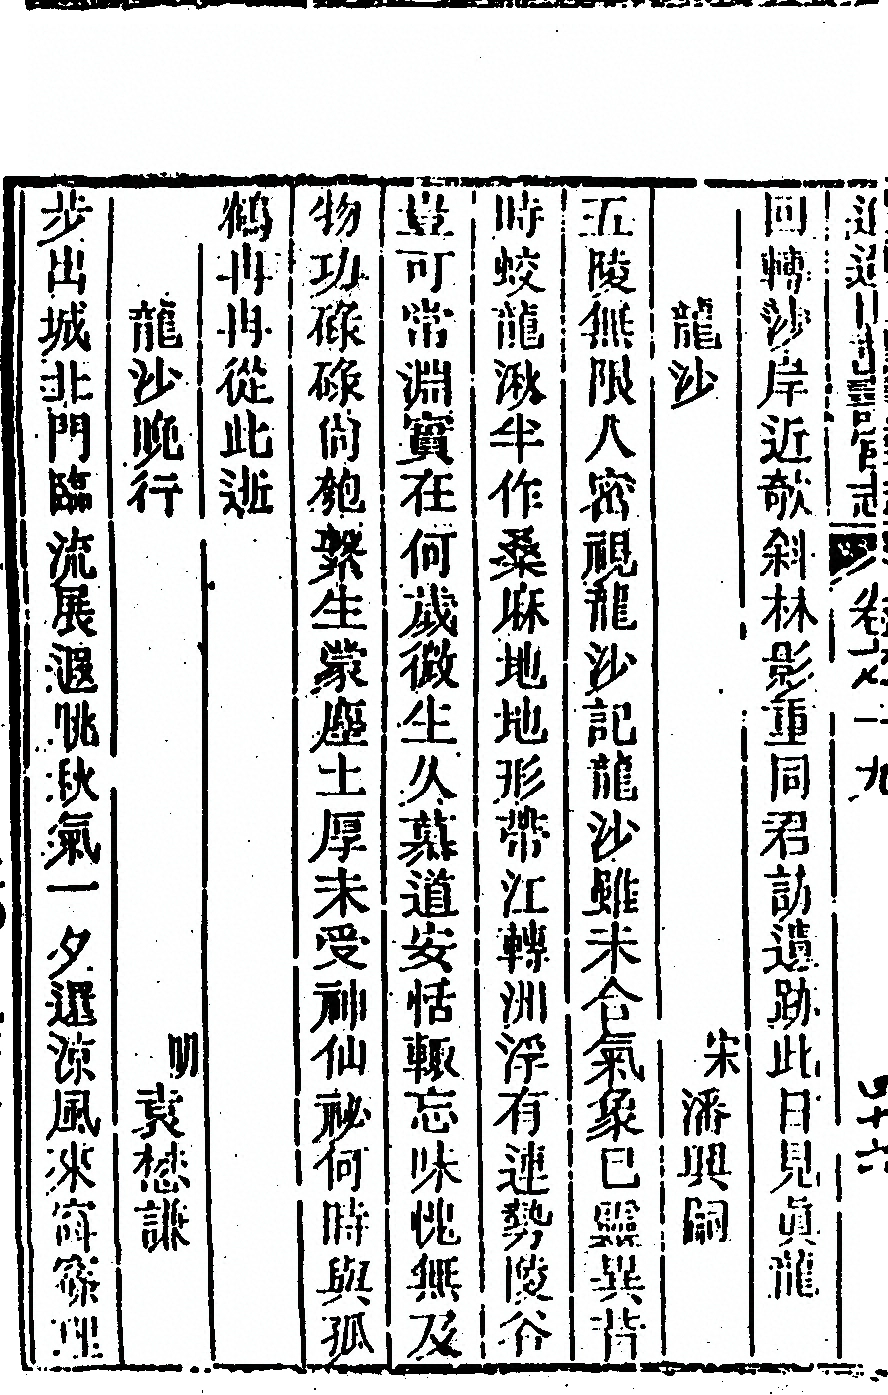 卷之一九
四十六
回轉沙岸近欹斜林影重同君訪遺跡此日見真龍
龍沙
宋潘興嗣
五陵無限人密視龍沙記龍沙雖未合氣象已靈異昔
時蛟龍湫半作桑麻地地形帶江轉洲浮有連勢陵谷
豈可常淵實在何歲微生久慕道安恬輒忘味愧無及
物功碌碌尚匏繫生蒙塵土厚未受神仙祕何時與孤
鶴冉冉從此逝
龍沙晚行
明袁懋謙
步出城北門臨流展遐眺秋氣一夕還涼風來窅窱